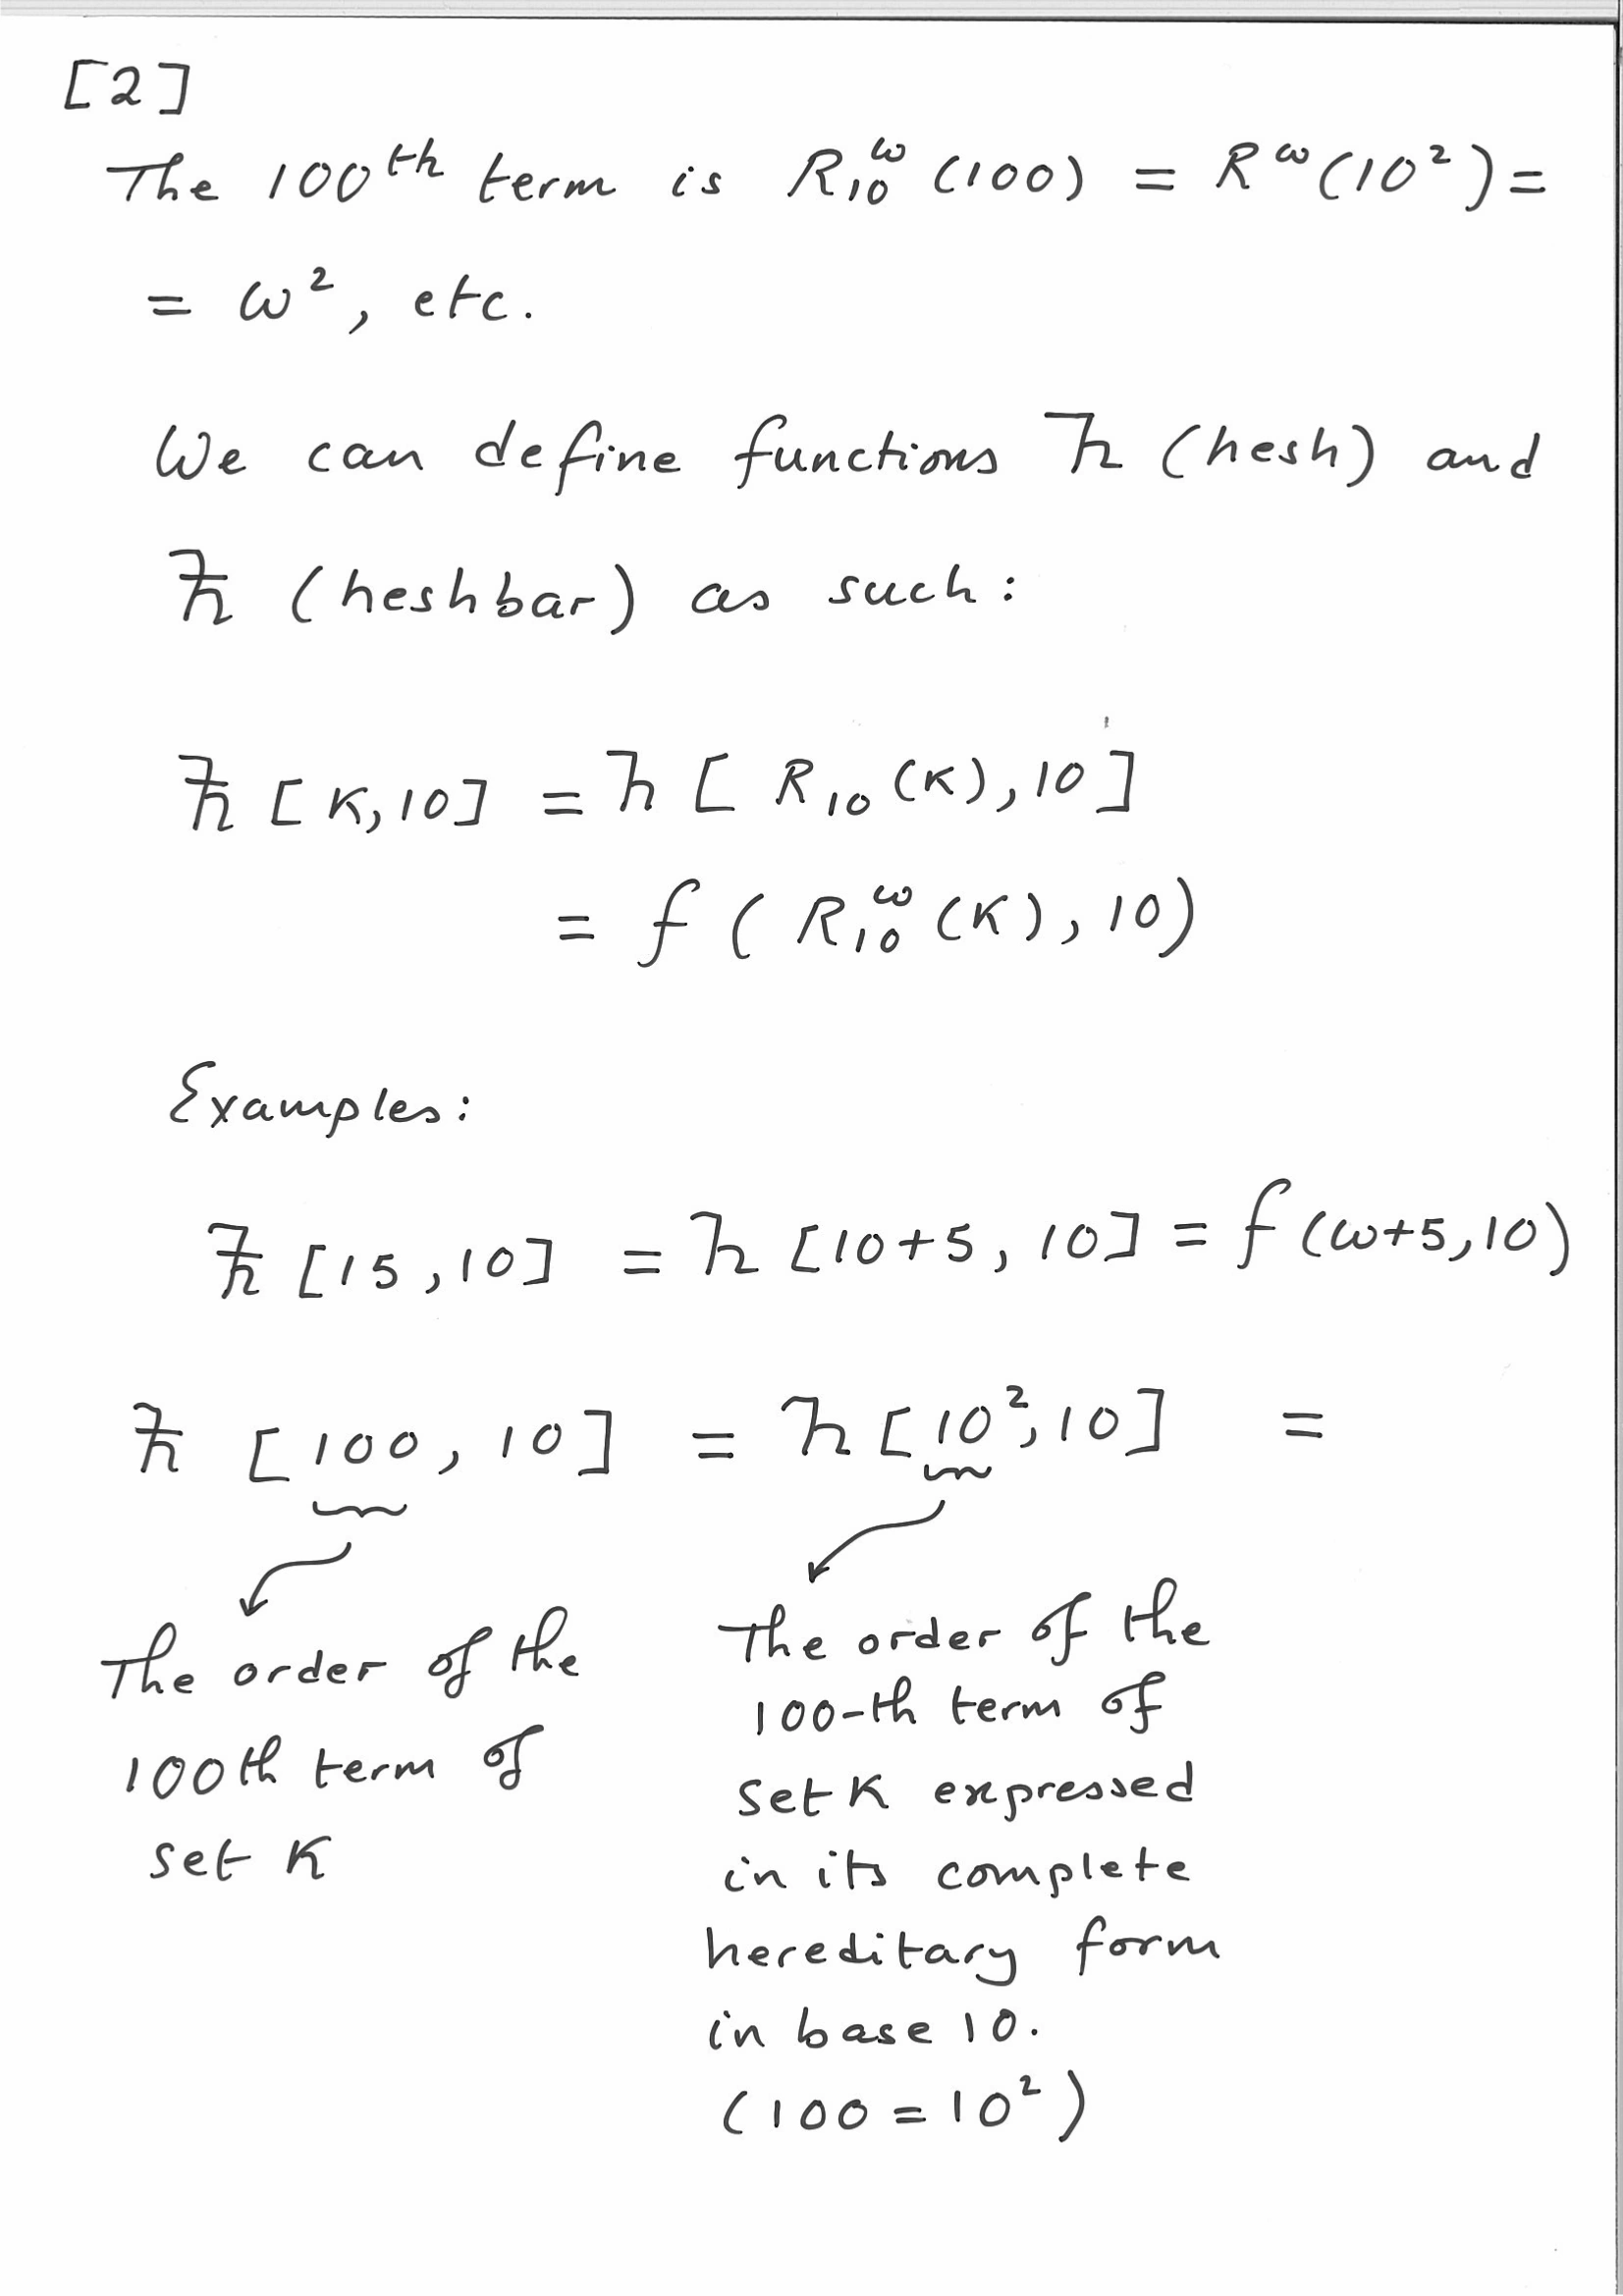 [2]
The 100th term is R₁₀^ω (100) = R^ω (10²) =
= ω², etc.
We can define functions ћ (hesh) and
ћ̵ (heshbar) as such:
ћ̵ [K,10] = ћ [ R₁₀ (K), 10 ]
= f ( R₁₀^ω (K), 10)
Examples:
ћ̵ [15,10] = ћ [10+5, 10] = f (ω+5,10)
ћ̵ [100, 10] = ћ [10²,10] =
The order of the
100th term of
set K
The order of the
100-th term of
set K expressed
in its complete
hereditary form
in base 10.
(100 = 10²)